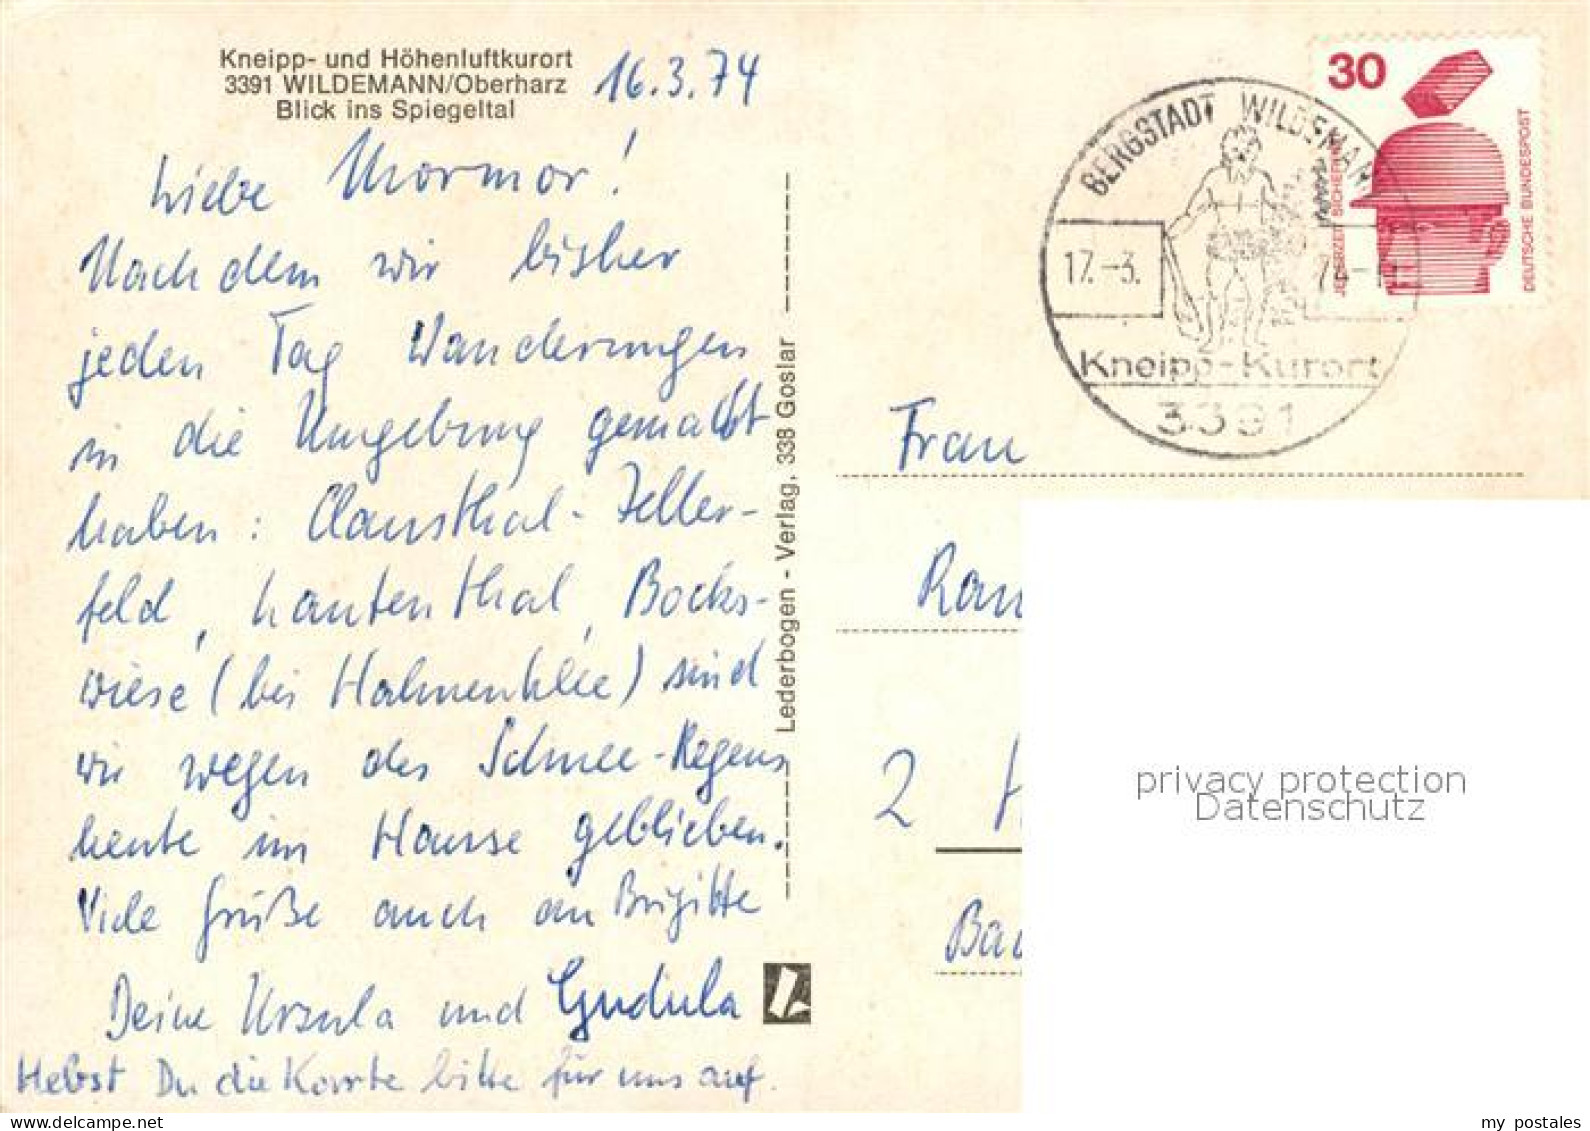 Kneipp- und Höhenluftkurort
3391 WILDEMANN/Oberharz
Blick ins Spiegeltal
16.3.74
Liebe Mormor!
Nachdem wir bisher
jeden Tag Wanderungen
in die Umgebung gemacht
haben: Clausthal-Zeller-
feld, Lautenthal, Bocks-
wiese (bei Hahnenklee) sind
wir wegen des Schnee-Regens
heute im Hause geblieben.
Viele Grüße auch an Brigitte
Deine Ursula und Gudula
Hebst Du die Karte bitte für uns auf.
Lederbogen - Verlag, 338 Goslar
30
JEDERZEIT SICHERHEIT
DEUTSCHE BUNDESPOST
BERGSTADT WILDEMANN
17.-3. 74-
Kneipp-Kurort
3391
Frau
2
privacy protection
Datenschutz
my postales